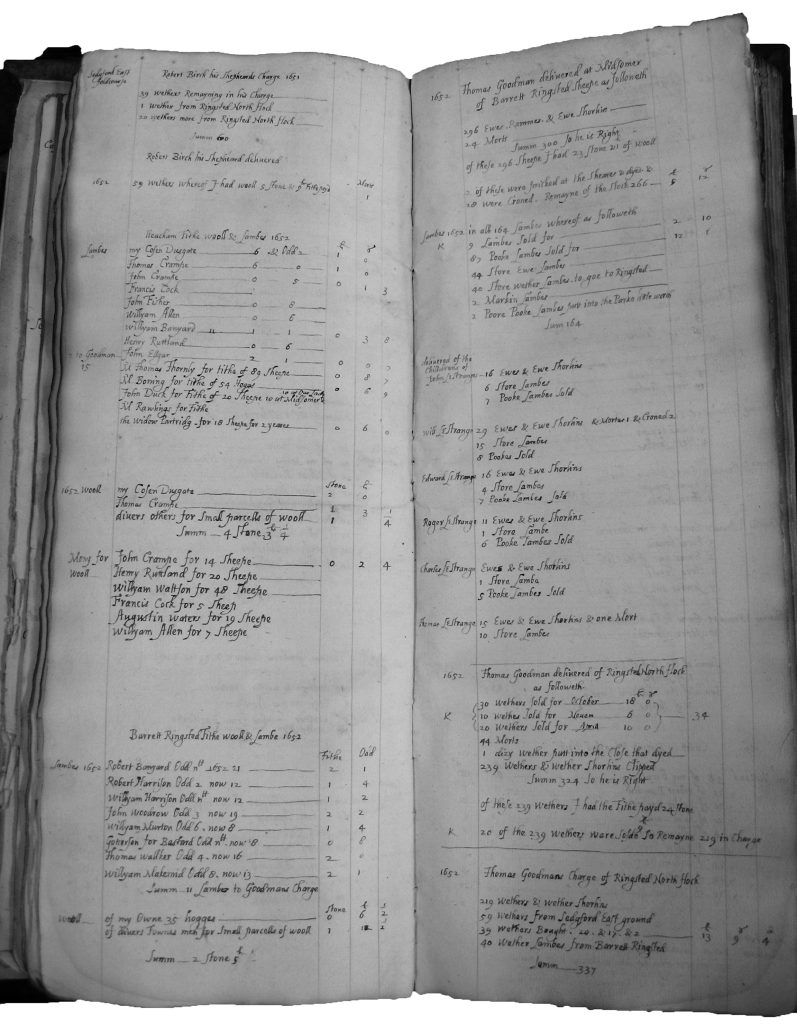 Sedgford East
Robert Birch his Shepheards Charge 1651
39 wethers Remayning in his Charge
1 wether from Ringsted North flock
20 wethers more from Ringsted North flock
Summ 60
Robert Birch his Shepheard delivered
1652 59 wethers whereof I had wooll 5 stone &
Mort
1
Heacham Tithe wooll & Lambes 1652
Lambes my Cosen Dusgate 6 & Odd 2 1 0
Thomas Crampe 6 0 1 0
John Crampe 0 5 0 1 3
Francis Cock
John Fisher 0 8
Willyam Allen 0 6
Willyam Banyard 1 1
Henry Ruttland 0 6 0 3 8
2 to Goodman John Edgar 2 1
15
M Thomas Thornly for tithe of 89 Sheepe 0 0 7
M Boning for tithe of 54 Hoggs 0 8 7
John Duck for Tithe of 20 Sheepe 10 at Midsomer 0 6 9
M Rawlings for tithe
the widow Partridg for 18 Sheepe for 2 yeares 0 6 0
Stone
1652 Wooll my Cosen Dusgate 2 0
Thomas Crampe 1 3 1
divers others for Small parcells of wooll 1 4
Summ 4 Stone 3 4
Mony for John Crampe for 14 Sheepe 0 2 4
Wooll Henry Ruttland for 20 Sheepe
Willyam Wattson for 48 Sheepe
Francis Cock for 5 Sheep
Augustin waters for 19 Sheepe
Willyam Allen for 7 Sheepe
Barrett Ringsted Tithe wooll & Lambe 1652
Tithe Odd
Lambes 1652 Robert Banyard Odd 1652 21 2 1
Robert Harrison Odd 2 now 12 1 4
Willyam Harrison Odd now 12 1 2
John Woodrow Odd 3 now 19 2 2
Willyam Murton Odd 6 now 8 1 4
for Basford Odd now 8 0 8
Thomas Walker Odd 4 now 16 2 0
Willyam Odd 8 now 13 2 1
Summ 11 Lambes to Goodmans Charge
Stone
Wooll of my Owne 35 hogges 0 6 2
of divers Townsmen for Small parcells of wooll 1 12 2
Summ 2 Stone 5
1652 Thomas Goodman delivered at Midsomer
of Barrett Ringsted Sheepe as followeth
296 Ewes Rammes & Ewe Shorlins
24 Morts
Summ 300 So he is Right
of these 296 Sheepe I had 23 Stone of wooll
2 of these were at the Shearer & dyed &
28 were Croned Remayne of the Stock 266 5 12
Lambes 1652 in all 164 Lambes whereof as followeth
K 9 Lambes Sold for 2 10
87 Pooke Lambes Sold for 12 1
44 Store Ewe Lambes
40 Store wether Lambes to goe to Ringsted
2 Markin Lambes
2 Poore Pooke Lambes putt into the Parke
Summ 164
delivered of the
Childrens of
John LeStrange 16 Ewes & Ewe Shorlins
6 Store Lambes
7 Pooke Lambes Sold
Will LeStrange 29 Ewes & Ewe Shorlins & Mortus 1 & Croned 2
15 Store Lambes
8 Pookes Sold
Edward LeStrange 16 Ewes & Ewe Shorlins
4 Store Lambes
7 Pooke Lambes Sold
Roger LeStrange 11 Ewes & Ewe Shorlins
1 Store Lambe
6 Pooke Lambes Sold
Charles LeStrange Ewes & Ewe Shorlins
1 Store Lambe
5 Pooke Lambes Sold
Thomas LeStrange 15 Ewes & Ewe Shorlins & one Mort
10 Store Lambes
1652 Thomas Goodman delivered of Ringsted North flock
as followeth
30 wethers Sold for October 18 0
K 10 wethers Sold for Novem 6 0 34
20 wethers Sold for April 10 0
44 Morts
1 dizy wether putt into the Close that dyed
239 Wethers & wether Shorlins Clipped
Summ 324 So he is Right
of these 239 wethers I had the Tithe payd 24 Stone
K 20 of the 239 wethers were Sold So Remayne 219 in Charge
1652 Thomas Goodmans Charge of Ringsted North flock
219 wethers & wether Shorlins
59 wethers from Sedgford East ground
39 wethers Bought 20 & 17 & 2 13 9 4
40 Wether Lambes from Barrett Ringsted
Summ 337